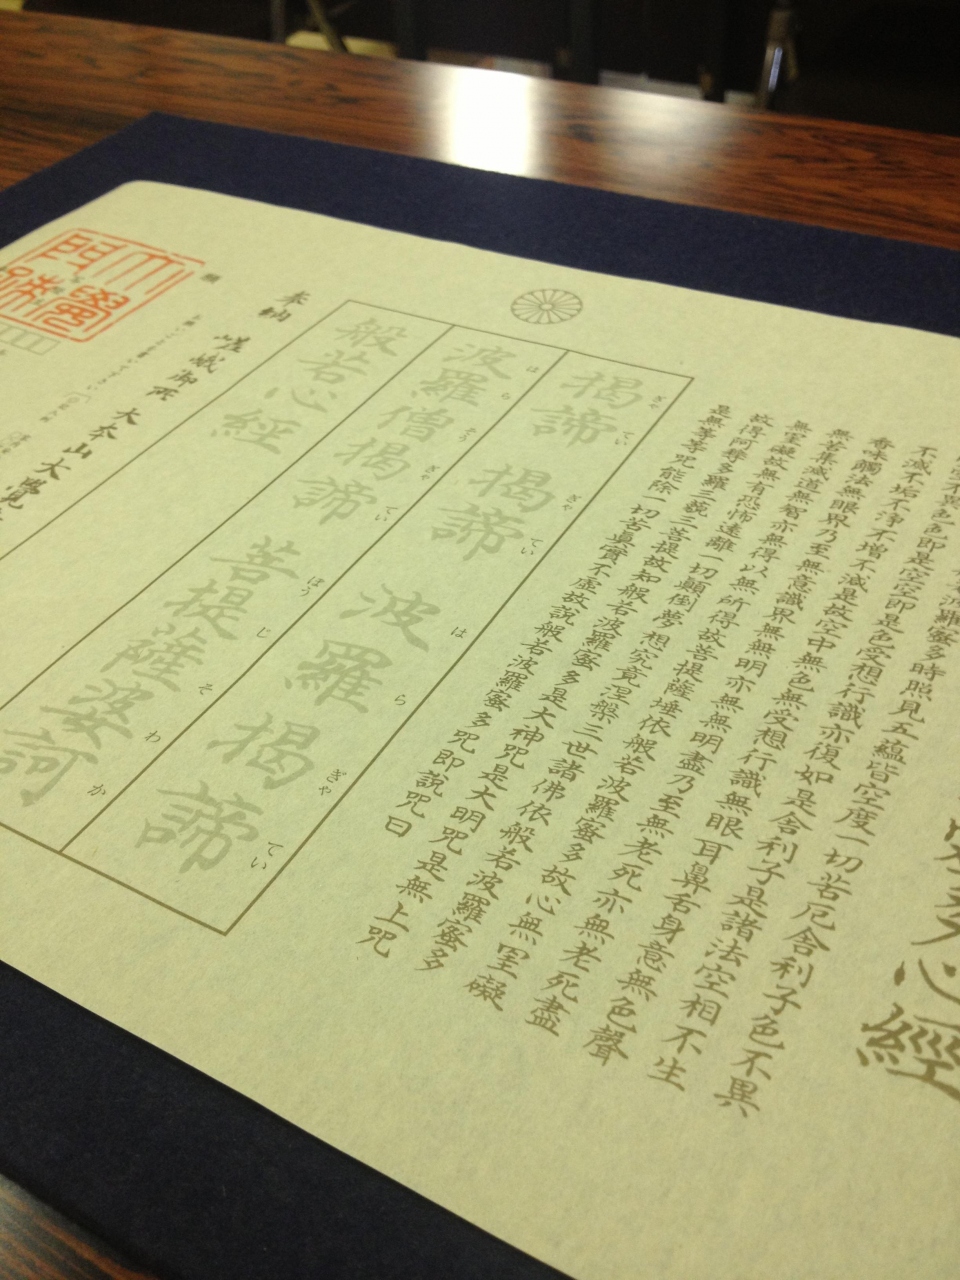 心經
波羅蜜多時照見五蘊皆空度一切苦厄舍利子色不異
不異色色即是空空即是色受想行識亦復如是舍利子是諸法空相不生
不滅不垢不淨不增不減是故空中無色無受想行識無眼耳鼻舌身意無色聲
香味觸法無眼界乃至無意識界無無明亦無無明盡乃至無老死亦無老死盡
無苦集滅道無智亦無得以無所得故菩提薩埵依般若波羅蜜多故心無罣礙
無罣礙故無有恐怖遠離一切顛倒夢想究竟涅槃三世諸佛依般若波羅蜜多
故得阿耨多羅三藐三菩提故知般若波羅蜜多是大神咒是大明咒是無上咒
是無等等咒能除一切苦真實不虛故說般若波羅蜜多咒即說咒曰
ぎゃ てい ぎゃ てい は ら ぎゃ てい
揭諦 揭諦 波羅揭諦
は ら そう ぎゃ てい ぼう じ そ わ か
波羅僧揭諦 菩提薩婆訶
般若心經
奉納
嵯峨御所 大本山大覺
願
大覺門跡